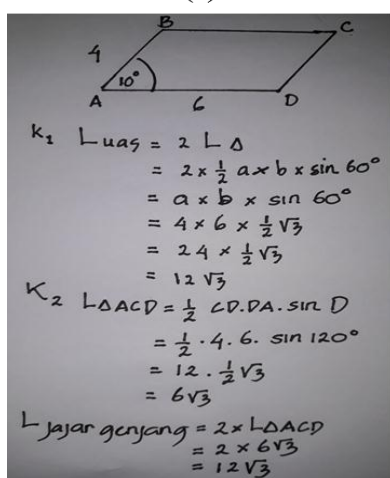 B
C
4
10°
A
6
D
K₁ Luas = 2 L Δ
= 2 x ½ a x b x sin 60°
= a x b x sin 60°
= 4 x 6 x ½ √3
= 24 x ½ √3
= 12 √3
K₂ LΔACD = ½ CD.DA. sin D
= ½ . 4 . 6. sin 120°
= 12 . ½ √3
= 6√3
L jajar genjang = 2 x LΔACD
= 2 x 6√3
= 12√3